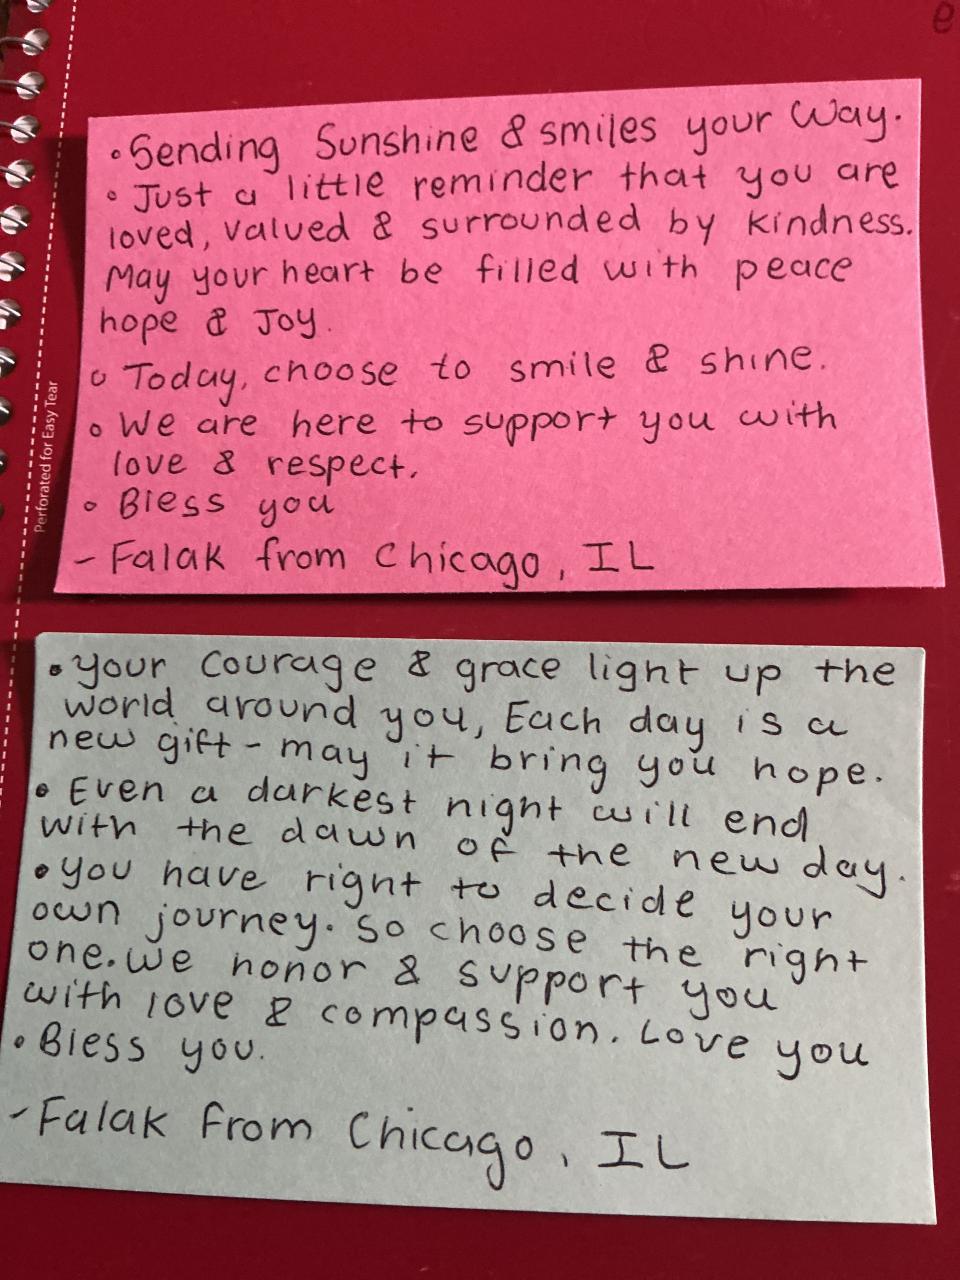 e
Perforated for Easy Tear
• Sending Sunshine & smiles your Way.
• Just a little reminder that you are
loved, valued & surrounded by kindness.
May your heart be filled with peace
hope & Joy.
• Today, choose to smile & shine.
• We are here to support you with
love & respect.
• Bless you
- Falak from Chicago, IL
• your courage & grace light up the
world around you, Each day is a
new gift - may it bring you hope.
• Even a darkest night will end
with the dawn of the new day.
• you have right to decide your
own journey. So choose the right
one. we honor & support you
with love & compassion. Love you
• Bless you.
- Falak from Chicago, IL